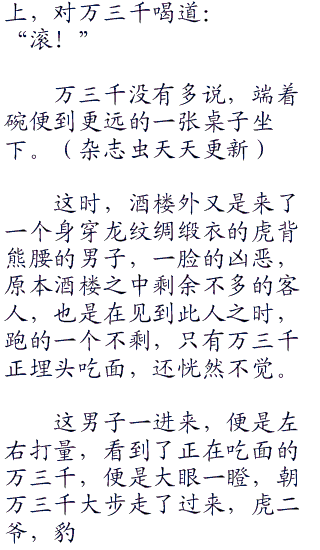 上，对万三千喝道：
“滚！”
万三千没有多说，端着
碗便到更远的一张桌子坐
下。（杂志虫天天更新）
这时，酒楼外又是来了
一个身穿龙纹绸缎衣的虎背
熊腰的男子，一脸的凶恶，
原本酒楼之中剩余不多的客
人，也是在见到此人之时，
跑的一个不剩，只有万三千
正埋头吃面，还恍然不觉。
这男子一进来，便是左
右打量，看到了正在吃面的
万三千，便是大眼一瞪，朝
万三千大步走了过来，虎二
爷，豹